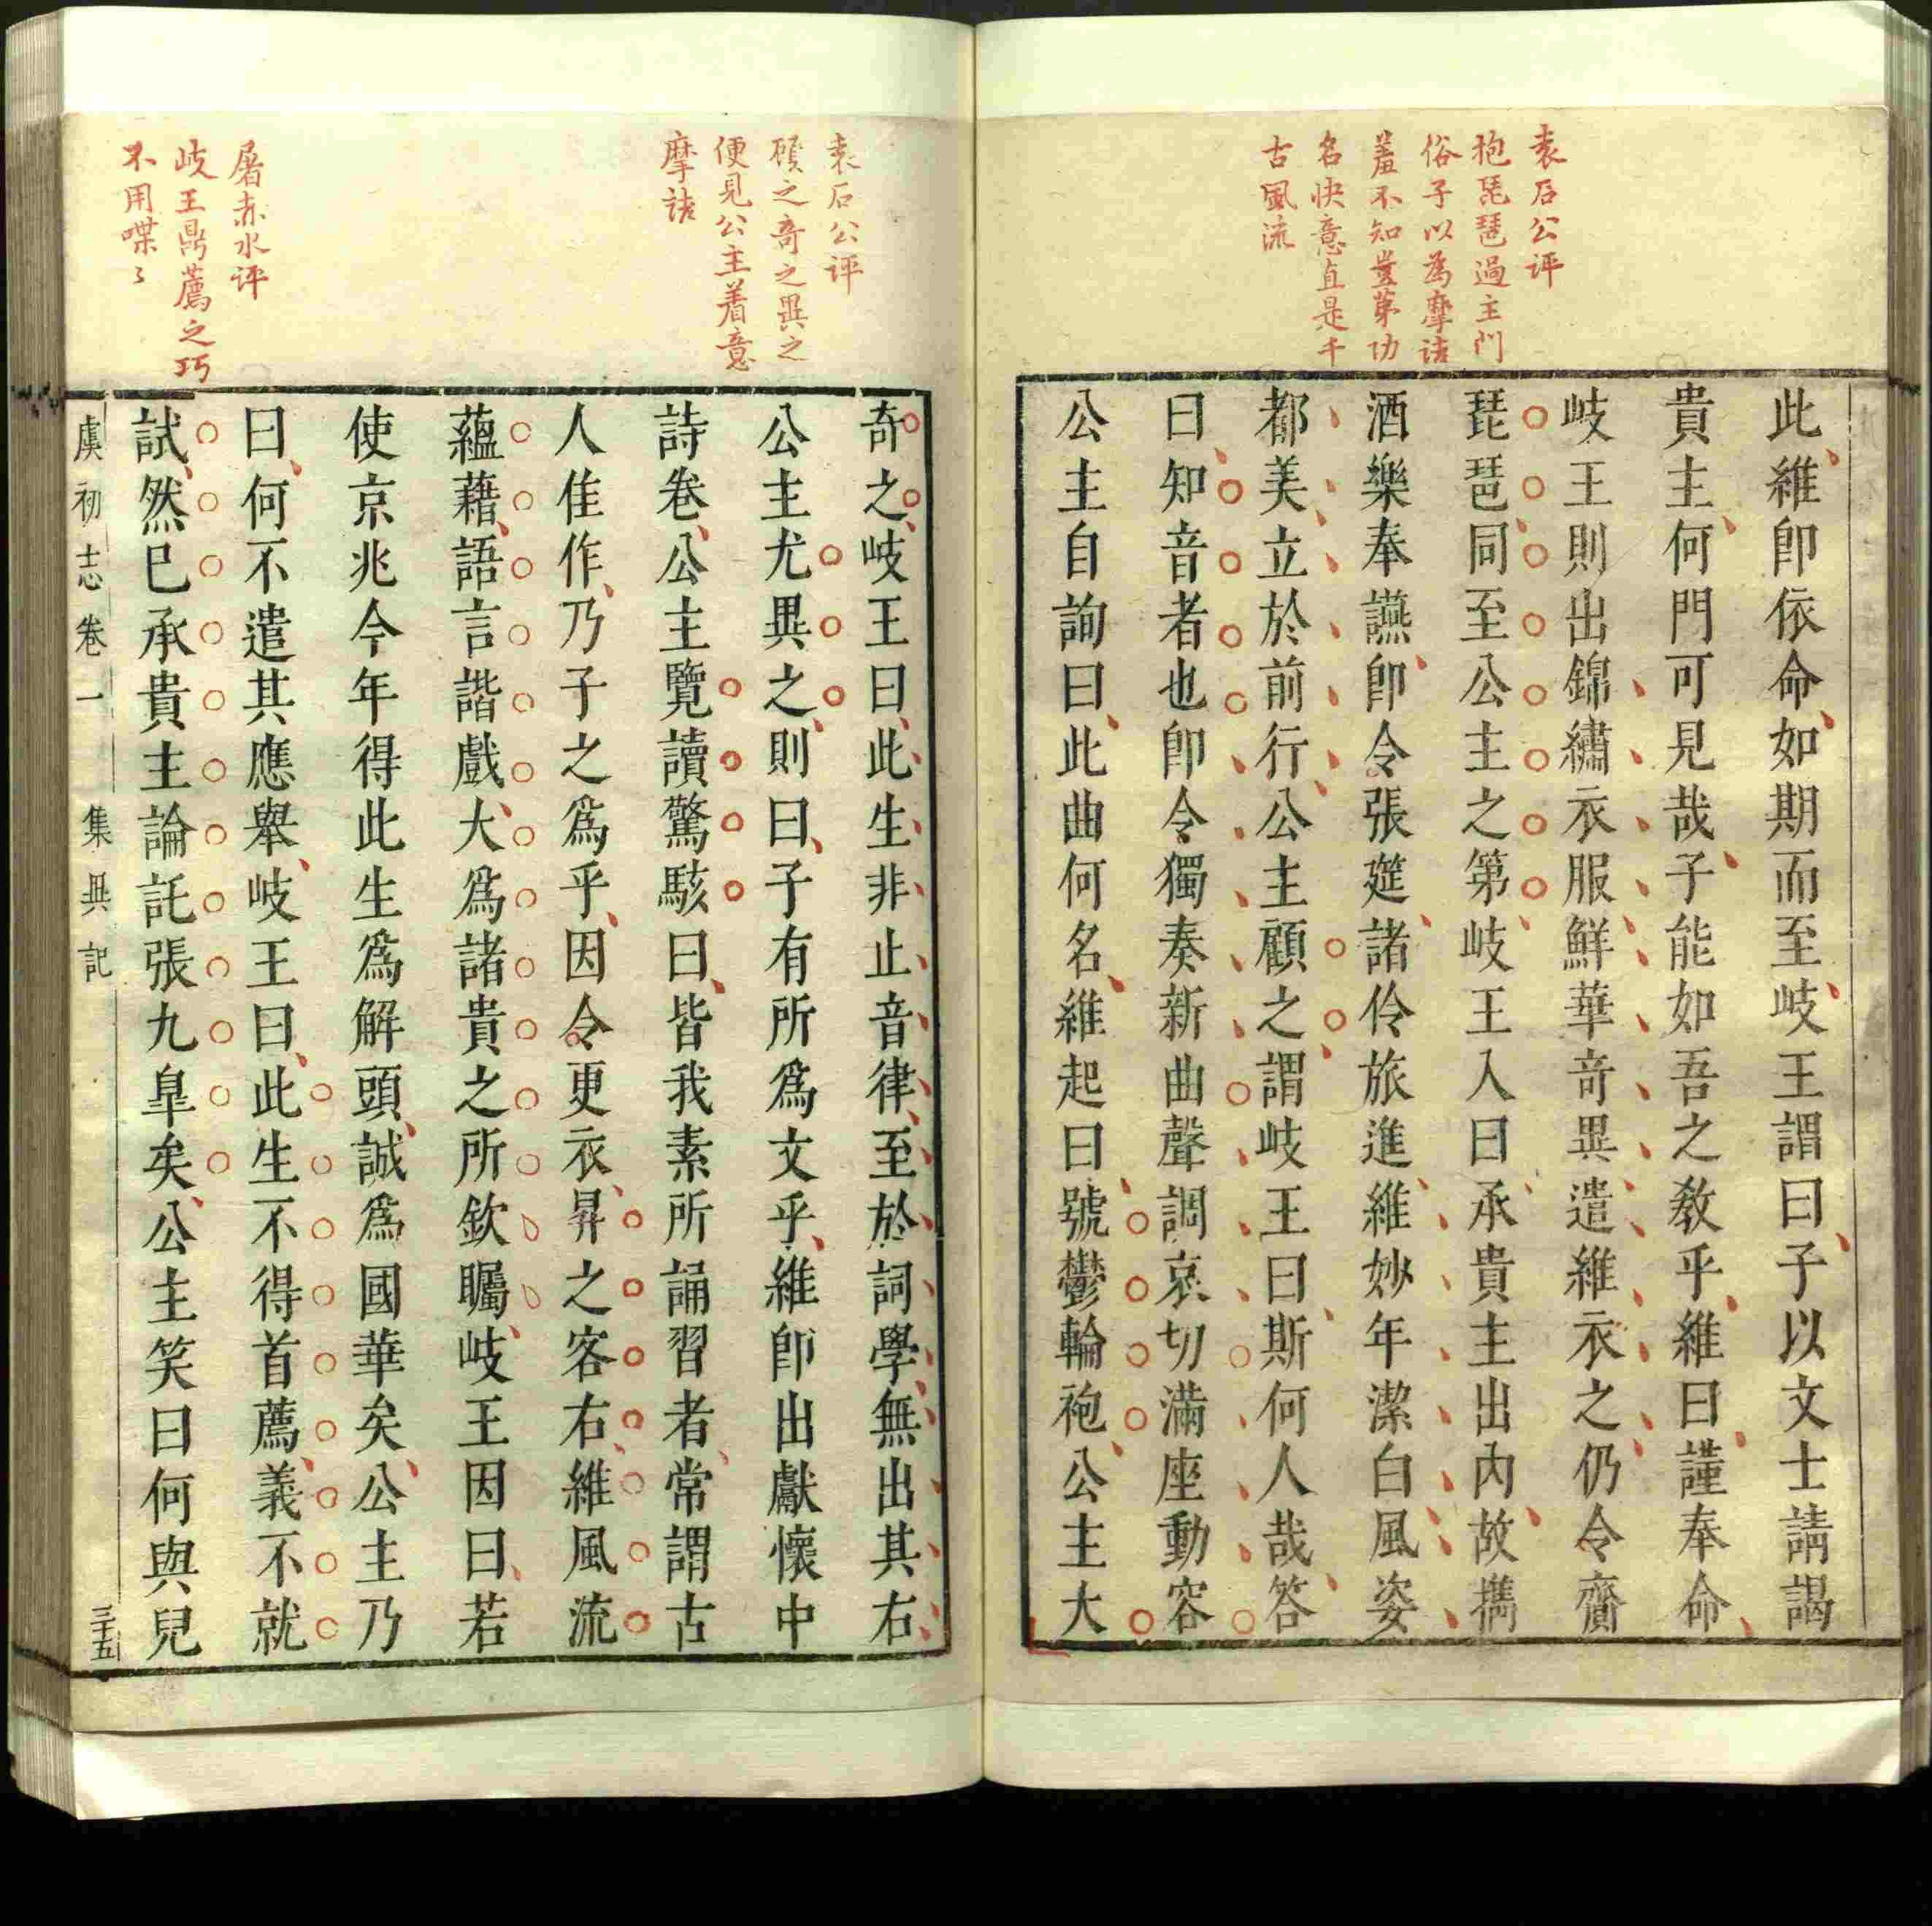 袁石公评
抱琵琶過主門
俗子以為摩詰
羞不知豈第功
名快意直是千
古風流
此維卽依命如期而至岐王謂曰子以文士請謁
貴主何門可見哉子能如吾之教乎維曰謹奉命
岐王則出錦繡衣服鮮華竒異遣維衣之仍令齎
琵琶同至公主之第岐王入曰承貴主出內故攜
酒樂奉讌卽令張筵諸伶旅進維妙年潔白風姿
都美立於前行公主顧之謂岐王曰斯何人哉答
曰知音者也卽令獨奏新曲聲調哀切滿座動容
公主自詢曰此曲何名維起曰號鬱輪袍公主大
袁石公评
顧之竒之異之
便見公主着意
摩詰
屠赤水评
岐王鼎薦之巧
不用喋〻
奇之岐王曰此生非止音律至於詞學無出其右
公主尤異之則曰子有所爲文乎維卽出獻懷中
詩卷公主覽讀驚駭曰皆我素所誦習者常謂古
人佳作乃子之爲乎因令更衣昇之客右維風流
蘊藉語言諧戲大爲諸貴之所欽矚岐王因曰若
使京兆今年得此生爲解頭誠爲國華矣公主乃
曰何不遣其應舉岐王曰此生不得首薦義不就
試然已承貴主論託張九臯矣公主笑曰何與兒
虞初志卷一 集異記 三十五